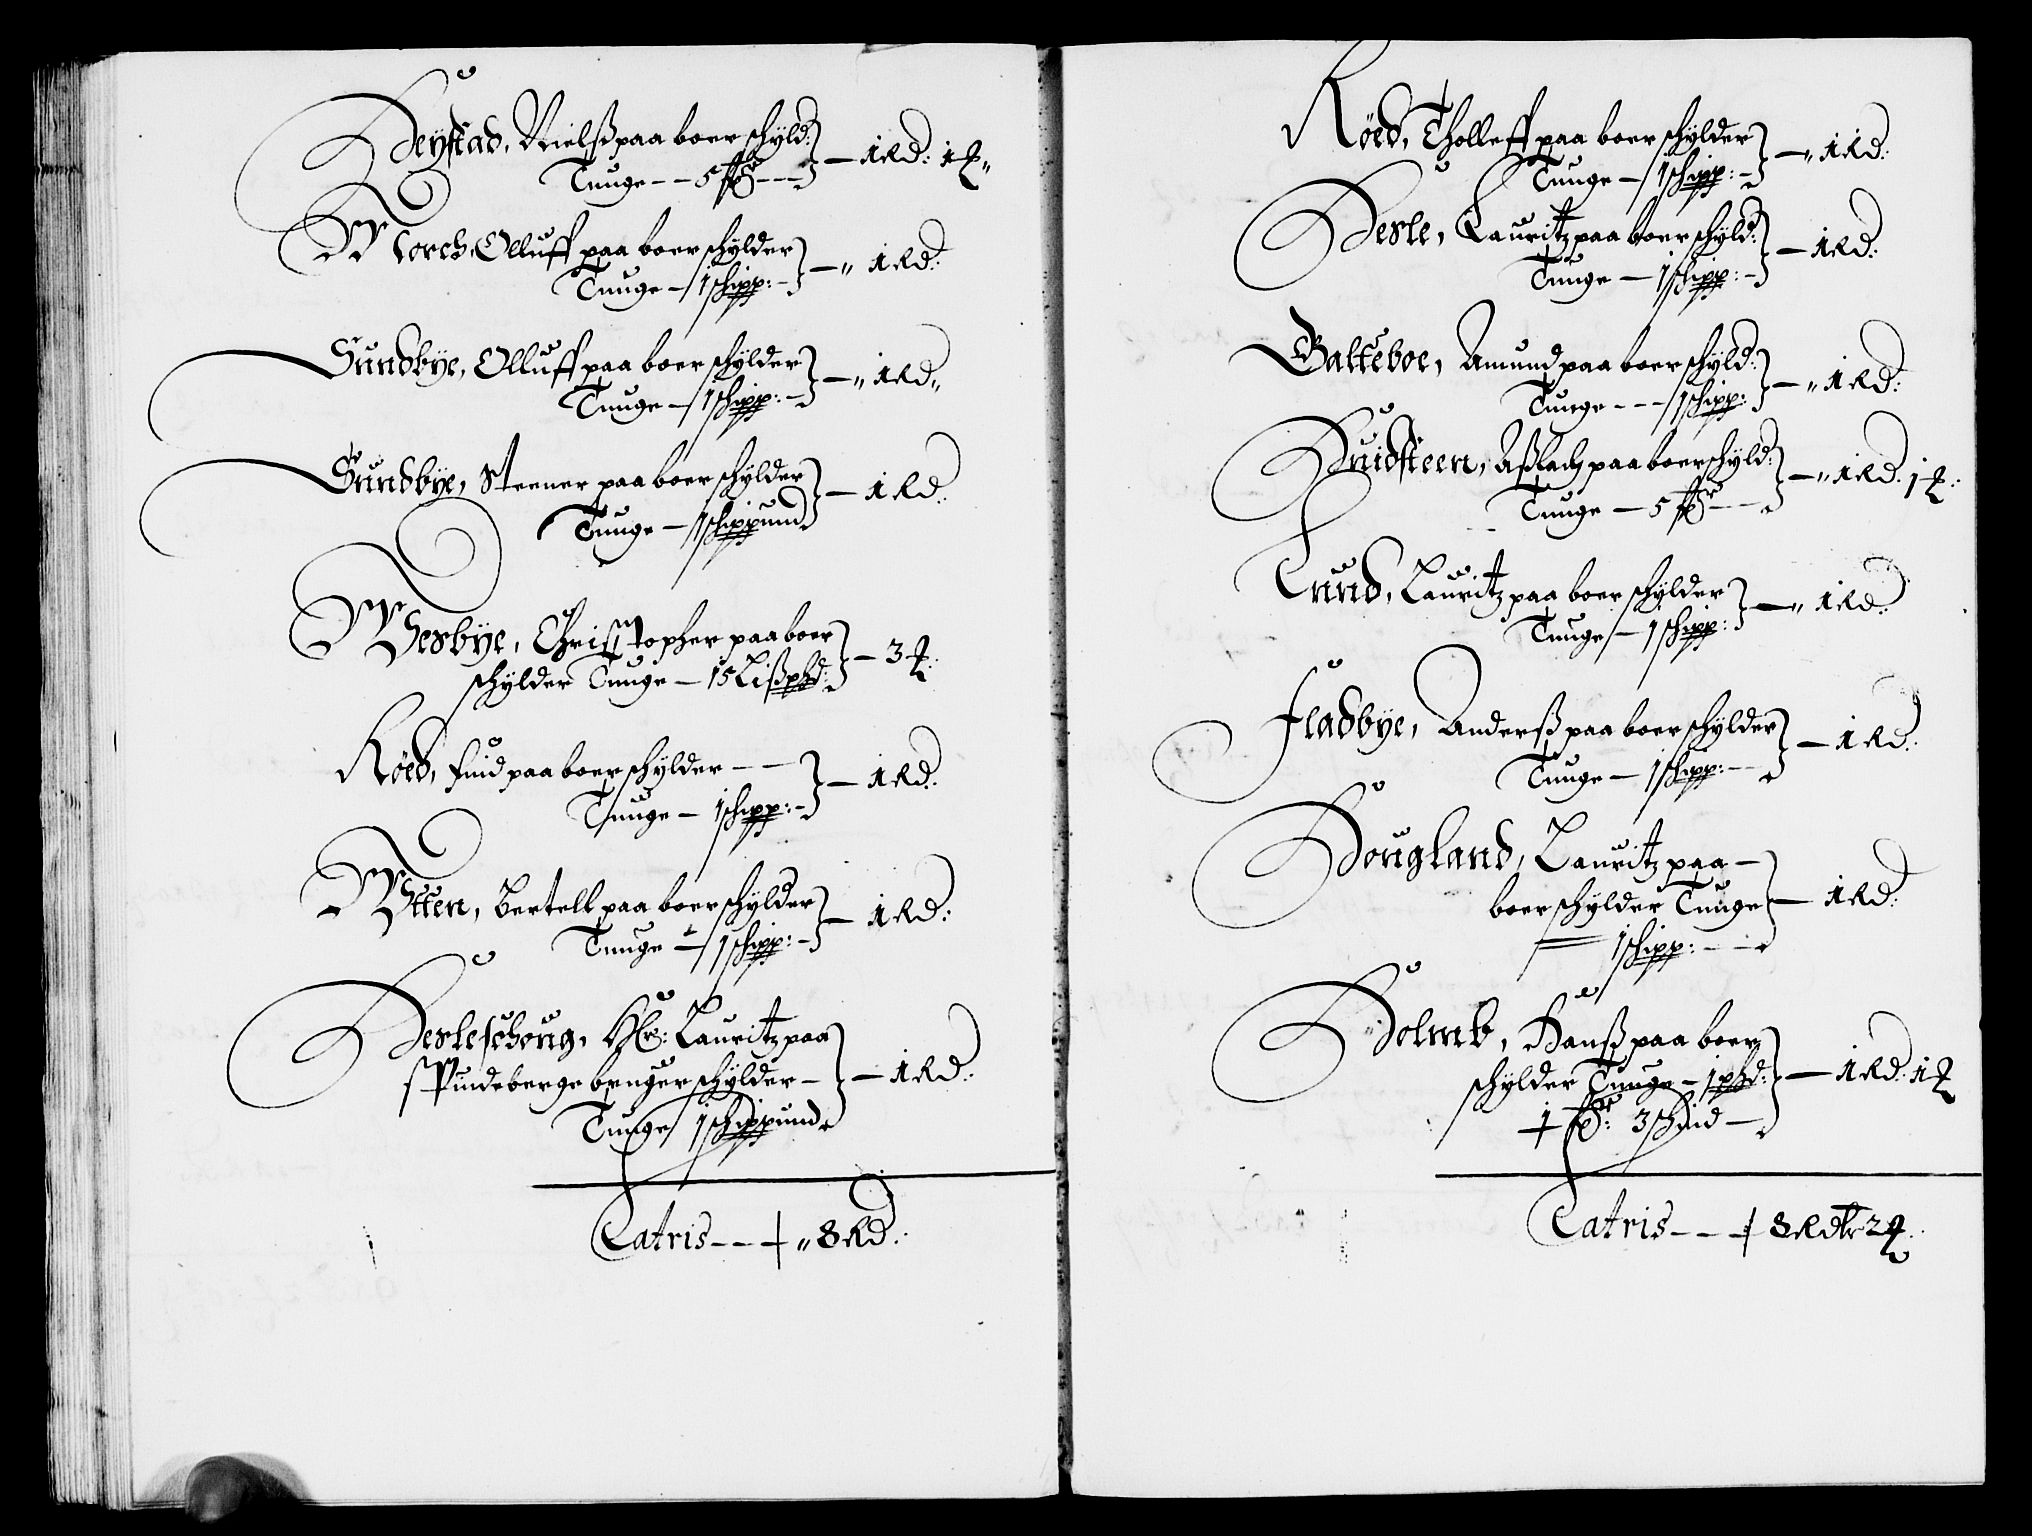 Heystad, Nielß paa boer schyld:
Tunge - - 5 fr - - - 1 Rd: 1 ₰
Morch, Olluff paa boer schylder
Tunge - 1 schipp: - 1 Rd:
Sundbye, Olluff paa boer schylder
Tunge - 1 schipp: - 1 Rd
Sundbye, Steener paa boer schylder
Tunge - 1 schippund - 1 Rd:
Wesbye, Christopher paa boer
schylder Tunge - 15 Lißpd: - 3 ₰:
Røed, paa boer schylder - -
Tunge - 1 schipp: - 1 Rd:
Ytten, Bertell paa boer schylder
Tunge - 1 schipp: - 1 Rd:
Hesleschoug, Hr: Lauritz paa
Spindeberge bruger schylder -
Tunge 1 schippund - 1 Rd:
Latris - - - 8 Rd:
Røed, Tholleff paa boer schylder
Tunge - 1 schipp: - 1 Rd:
Hesle, Lauritz paa boer schyld:
Tunge - 1 schipp: - 1 Rd:
Galteboe, Amund paa boer schyld:
Tunge - - - 1 schipp: - 1 Rd:
Huidsteen, Aßlach paa boer schyld:
Tunge - 5 fr - - - 1 Rd. 1 ₰:
Lund, Lauritz paa boer schylder
Tunge - 1 schipp: - 1 Rd:
Fladbye, Anderß paa boer schylder
Tunge - 1 schipp: - - 1 Rd:
Hougland, Lauritz paa -
boer schylder Tunge - 1 Rd:
1 schipp: - -
Holmb, Hanß paa boer
schylder Tunge - 1 phd: - 1 Rd: 1 ₰
1 fr: 3 schid -
Latris - - - 8 Rdlr 2 ₰: